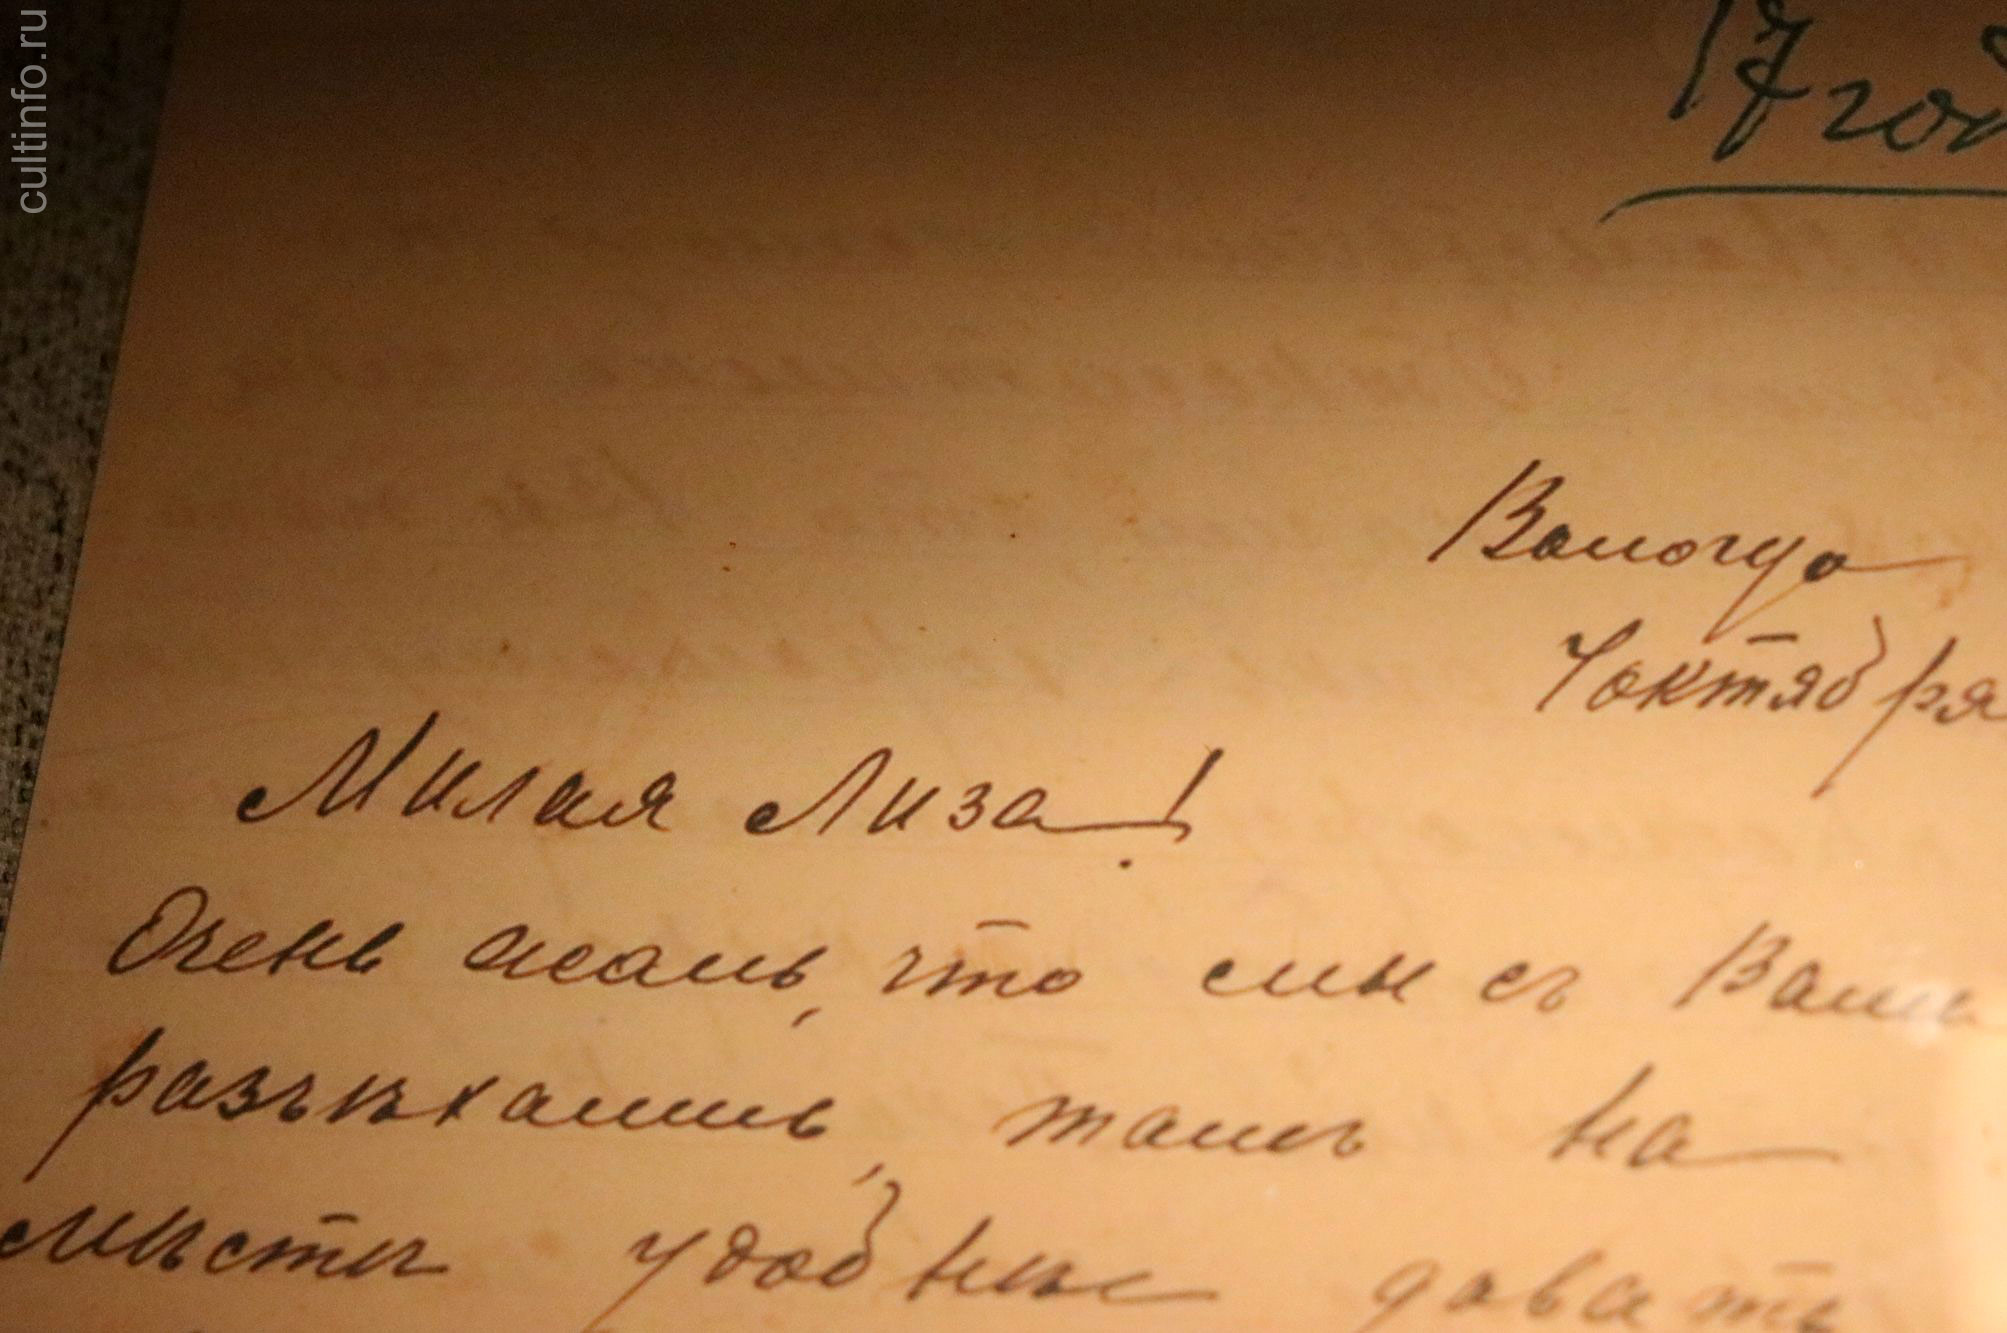 cultinfo.ru
17 год
Вологда
7 октября
Милая Лиза!
Очень жаль, что мы съ Вами
разъѣхались, тамъ на
мѣстѣ удобнѣе давать